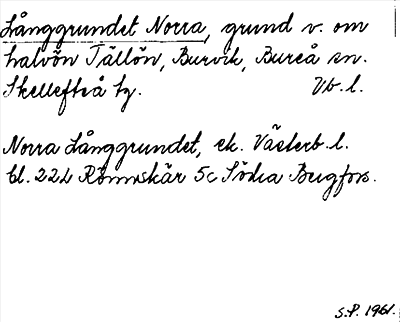 Långgrundet Norra, grund v. om
halvön Tällön, Burvik, Bureå sn.
Skellefteå tg. Vb. l.
Norra Långgrundet, ek. Västerb. l.
bl. 22L Rönnskär 5c Södra Bergfors.
S.P. 1961.